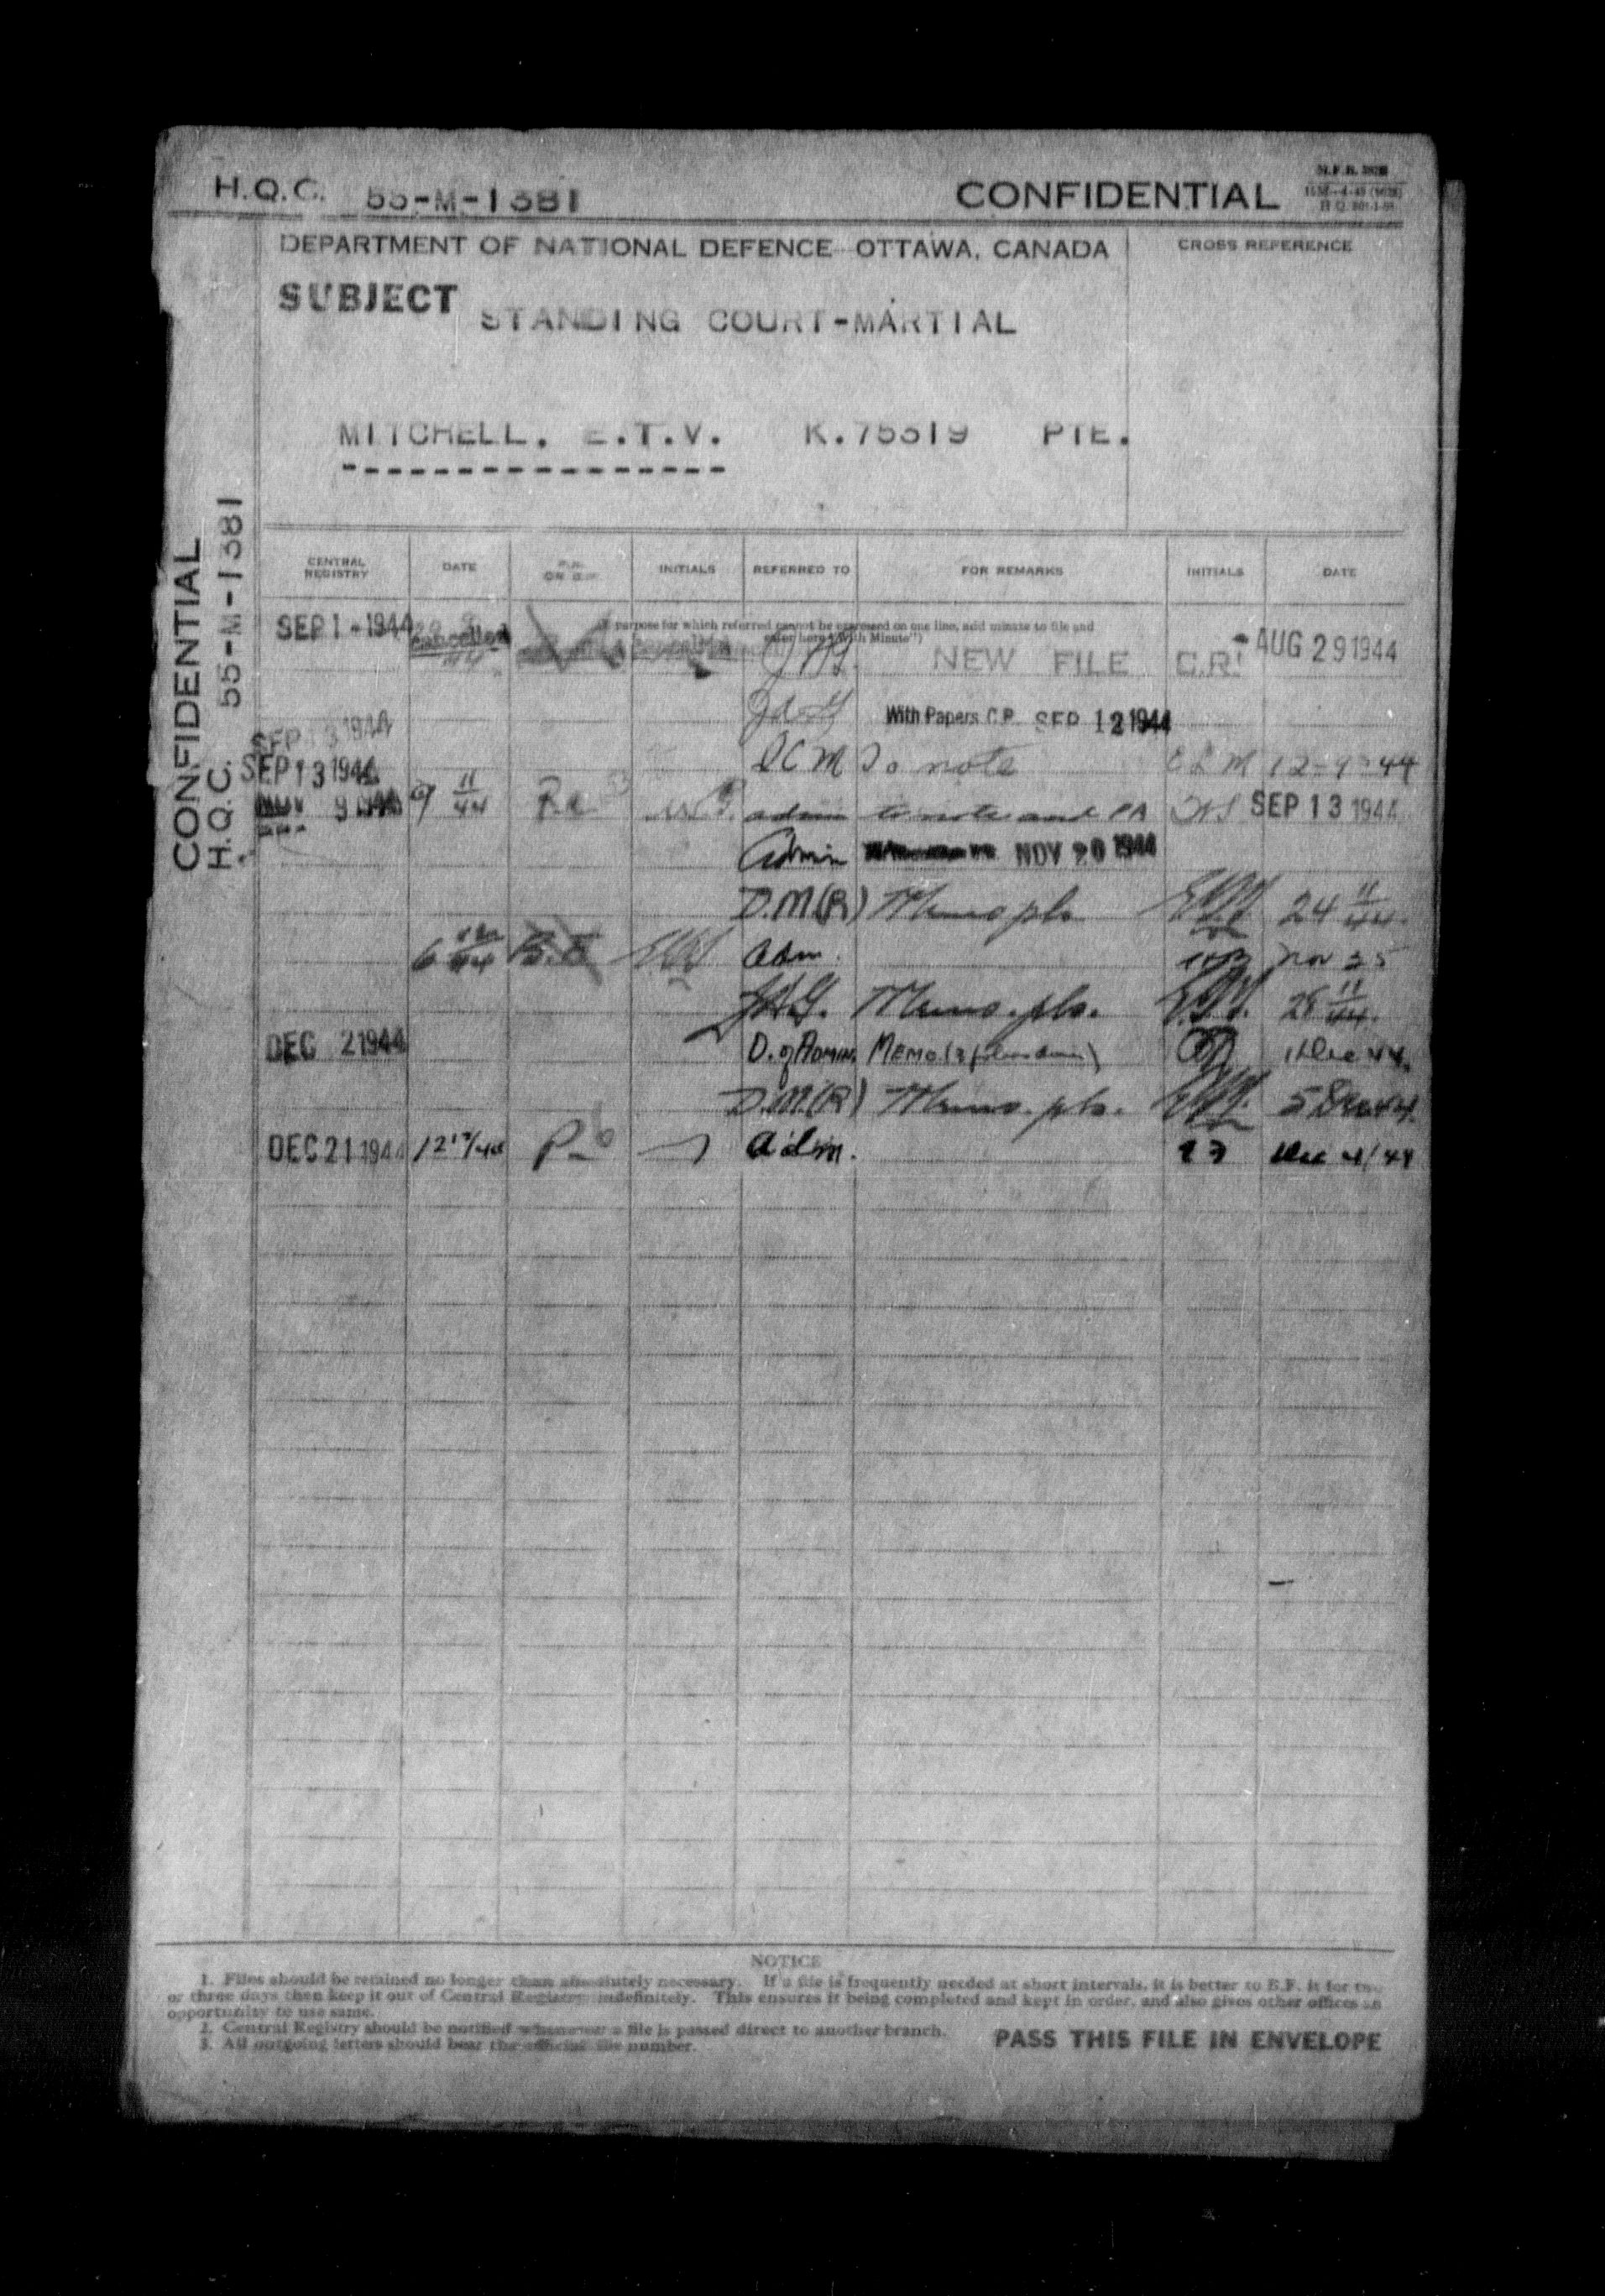 H.Q.C. 55-M-1381 CONFIDENTIAL
DEPARTMENT OF NATIONAL DEFENCE OTTAWA, CANADA
CROSS REFERENCE
SUBJECT
STANDING COURT-MARTIAL
MITCHELL. E.T.V. K.75319 PTE.
CONFIDENTIAL
H.Q.C. 55-M-1381
CENTRAL REGISTRY DATE INITIALS REFERRED TO FOR REMARKS INITIALS DATE
purpose for which referred cannot be expressed on one line, add minute to file and
enter here "With Minute")
SEP 1 - 1944 cancelled NEW FILE C.R. AUG 29 1944
JAG With Papers SEP 12 1944
SEP 13 1944
To note 12-9-44
SEP 13 1944
NOV 9 1944 9 11/44 admin to note and PA SEP 13 1944
Admin NOV 20 1944
D.M.(R) Memo pls. 24 11/44
6 12/44 B.F. Adm. Nov 25
J.A.G. Memo. pls. 28 11/44
DEC 2 1944 D. of ADMIN. MEMO 1 Dec 44.
D.M.(R) Memo. pls. 5 Dec 44.
DEC 21 1944 12 12/44 Adm.
NOTICE
1. Files should be retained no longer than absolutely necessary. If a file is frequently needed at short intervals, it is better to B.F. it for two
or three days then keep it out of Central Registry indefinitely. This ensures it being completed and kept in order, and also gives other offices an
opportunity to use same.
2. Central Registry should be notified whenever a file is passed direct to another branch.
3. All outgoing letters should bear the official file number.
PASS THIS FILE IN ENVELOPE